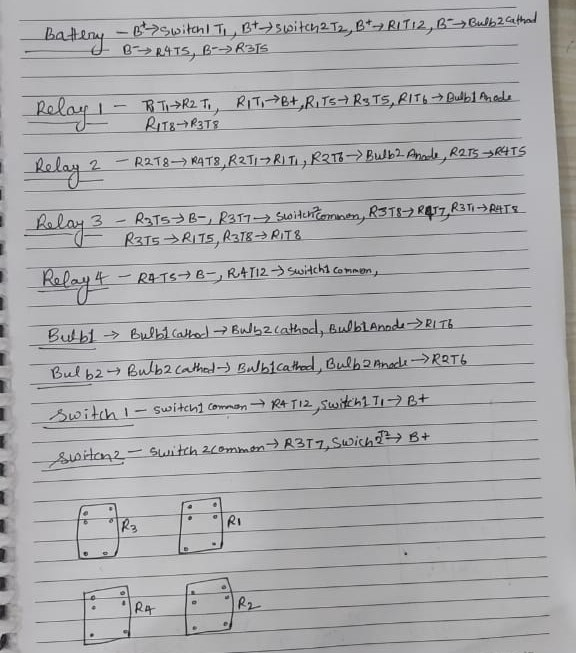 Battery - B+→Switch1 T1, B+→Switch2 T2, B+→R1T12, B-→Bulb2 Cathod
B-→R4T5, B-→R3T5
Relay 1 - R1T1→R2T1, R1T1→B+, R1T5→R3T5, R1T6→Bulb1 Anode
R1T8→R3T8
Relay 2 - R2T8→R4T8, R2T1→R1T1, R2T6→Bulb2 Anode, R2T5→R4T5
Relay 3 - R3T5→B-, R3T7→Switch2 common, R3T8→R4T7, R3T1→R4T8
R3T5→R1T5, R3T8→R1T8
Relay 4 - R4T5→B-, R4T12→Switch1 common,
Bulb1 → Bulb1 Cathod→Bulb2 Cathod, Bulb1 Anode→R1T6
Bulb2→ Bulb2 Cathod→Bulb1 Cathod, Bulb2 Anode→R2T6
Switch 1 - switch1 common→R4T12, Switch1 T1→B+
Switch2 - Switch 2 common→R3T7, Swich2 T2→B+
R3 R1
R4 R2